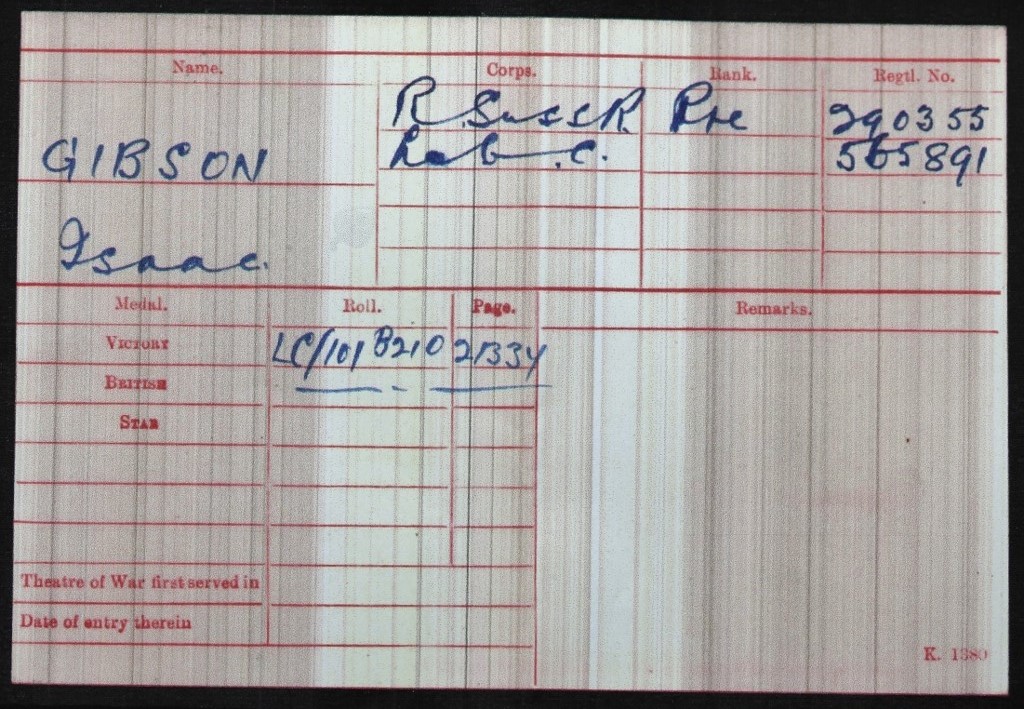 Name. Corps. Rank. Regtl. No.
R. Suss R. Pte 290355
GIBSON Lab. C. 565891
Isaac.
Medal. Roll. Page. Remarks.
VICTORY LC/101 B210 21334
BRITISH
STAR
Theatre of War first served in
Date of entry therein
K. 1380